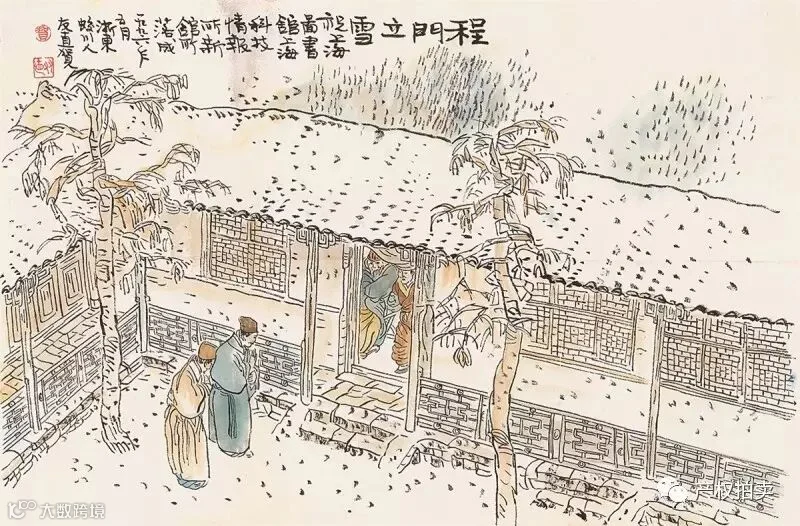 程門立雪
祝上海
圖書
館上海
科技
情報
所新
館所
落成
一九九六年
五月
浙東
蛟川人
友直賀
大数跨境
产权拍卖